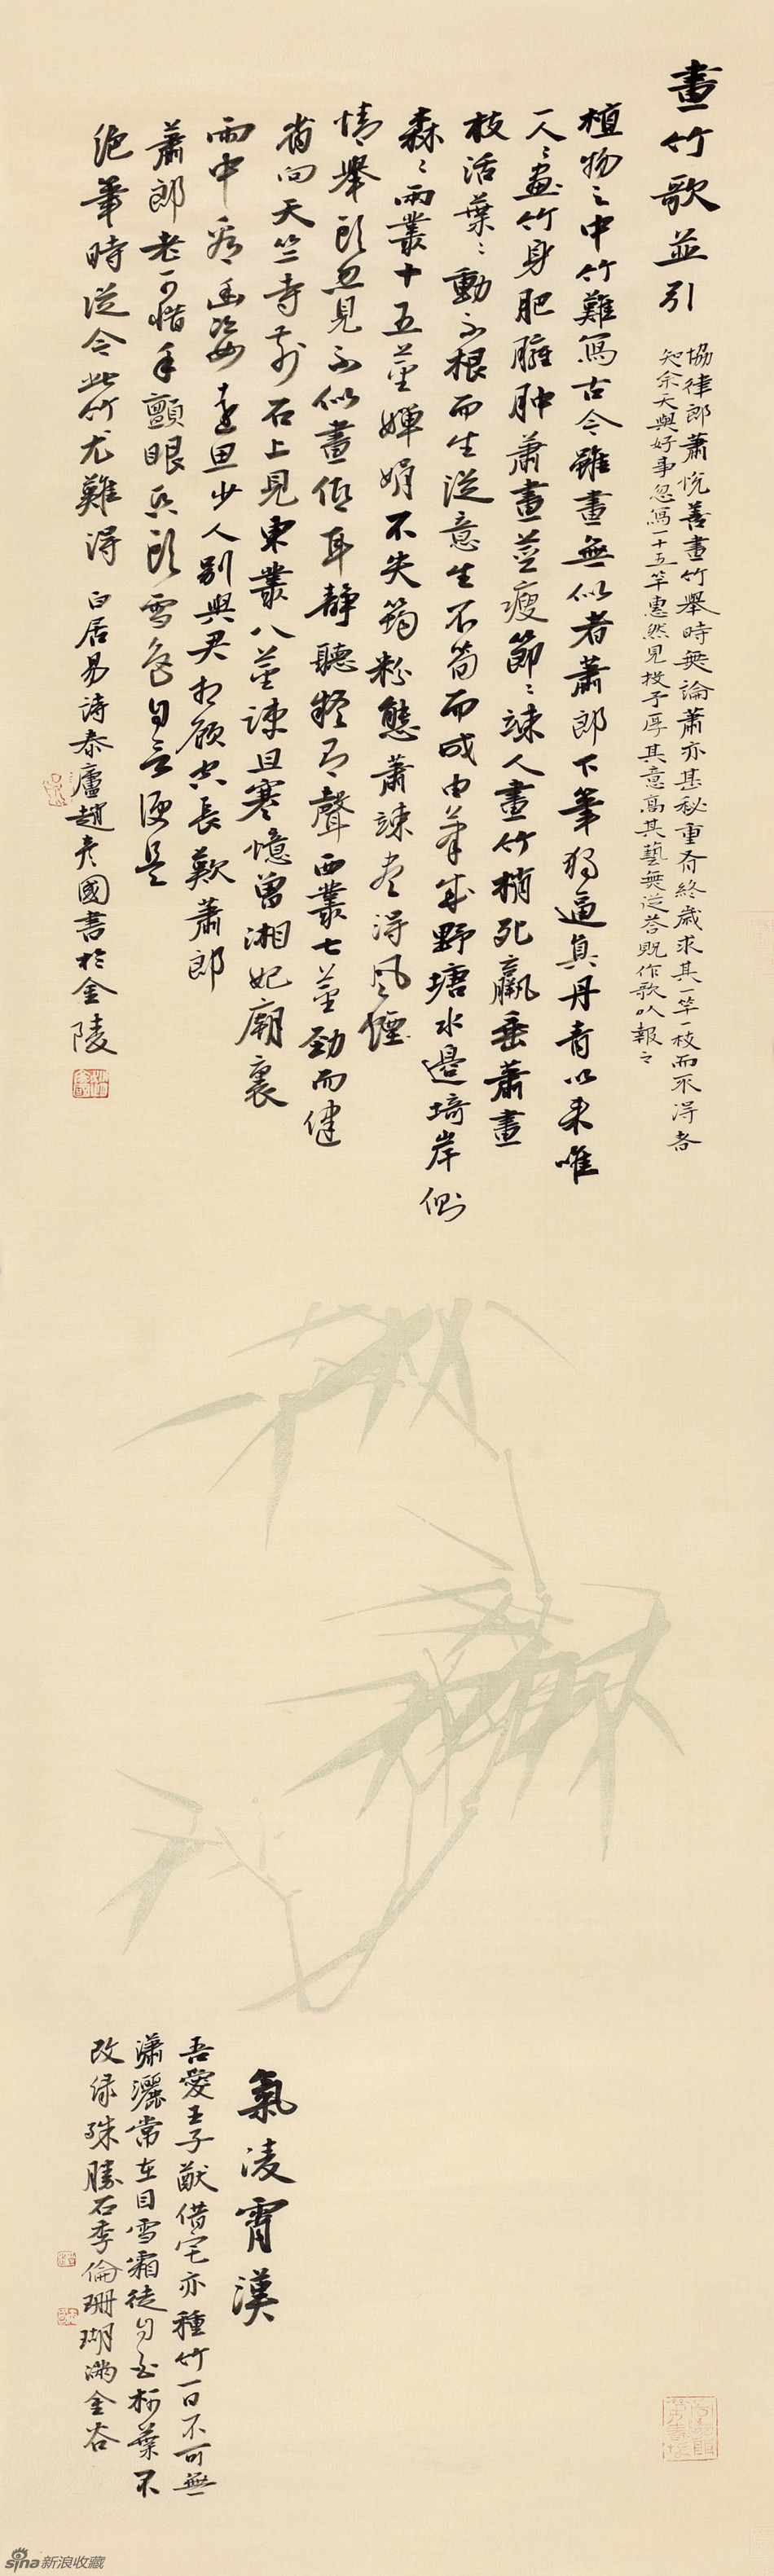 畫竹歌並引
協律郎蕭悅善畫竹舉時無論蕭亦甚秘重有終歲求其一竿一枝而不得者
知余天與好事忽寫一十五竿惠然見投予厚其意高其藝無從答貺作歌以報之
植物之中竹難寫古今雖畫無似者蕭郎下筆獨逼真丹青以來唯
一人人畫竹身肥臃肿蕭畫莖瘦節節竦人畫竹梢死羸垂蕭畫
枝活葉葉動不根而生從意生不筍而成由筆成野塘水邊埼岸側
森森兩叢十五莖嬋娟不失筠粉態蕭竦盡得風煙
情舉頭忽見不似畫低耳靜聽疑有聲西叢七莖勁而健
省向天竺寺前石上見東叢八莖疎且寒憶曾湘妃廟裏
雨中看幽姿遠思少人別與君相顧空長歎蕭郎
蕭郎老可惜手顫眼昏頭雪色自言便是
絕筆時從今此竹尤難得 白居易詩泰廬趙彥國書於金陵
氣凌霄漢
吾愛王子猷借宅亦種竹一日不可無
瀟灑常在目雪霜徒自白柯葉不
改绿殊勝石季倫珊瑚滿金谷
sina新浪收藏